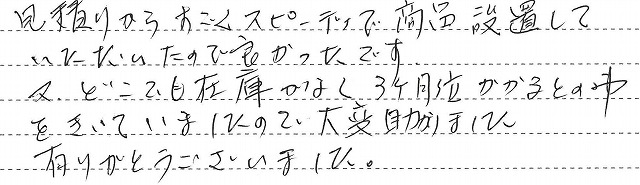 見積りからすごくスピーディで商品設置して
いただいたので良かったです
又、どこでも在庫がなく3ケ月位かかるとの事
をきいていましたので大変助かりました
有りがとうございました。